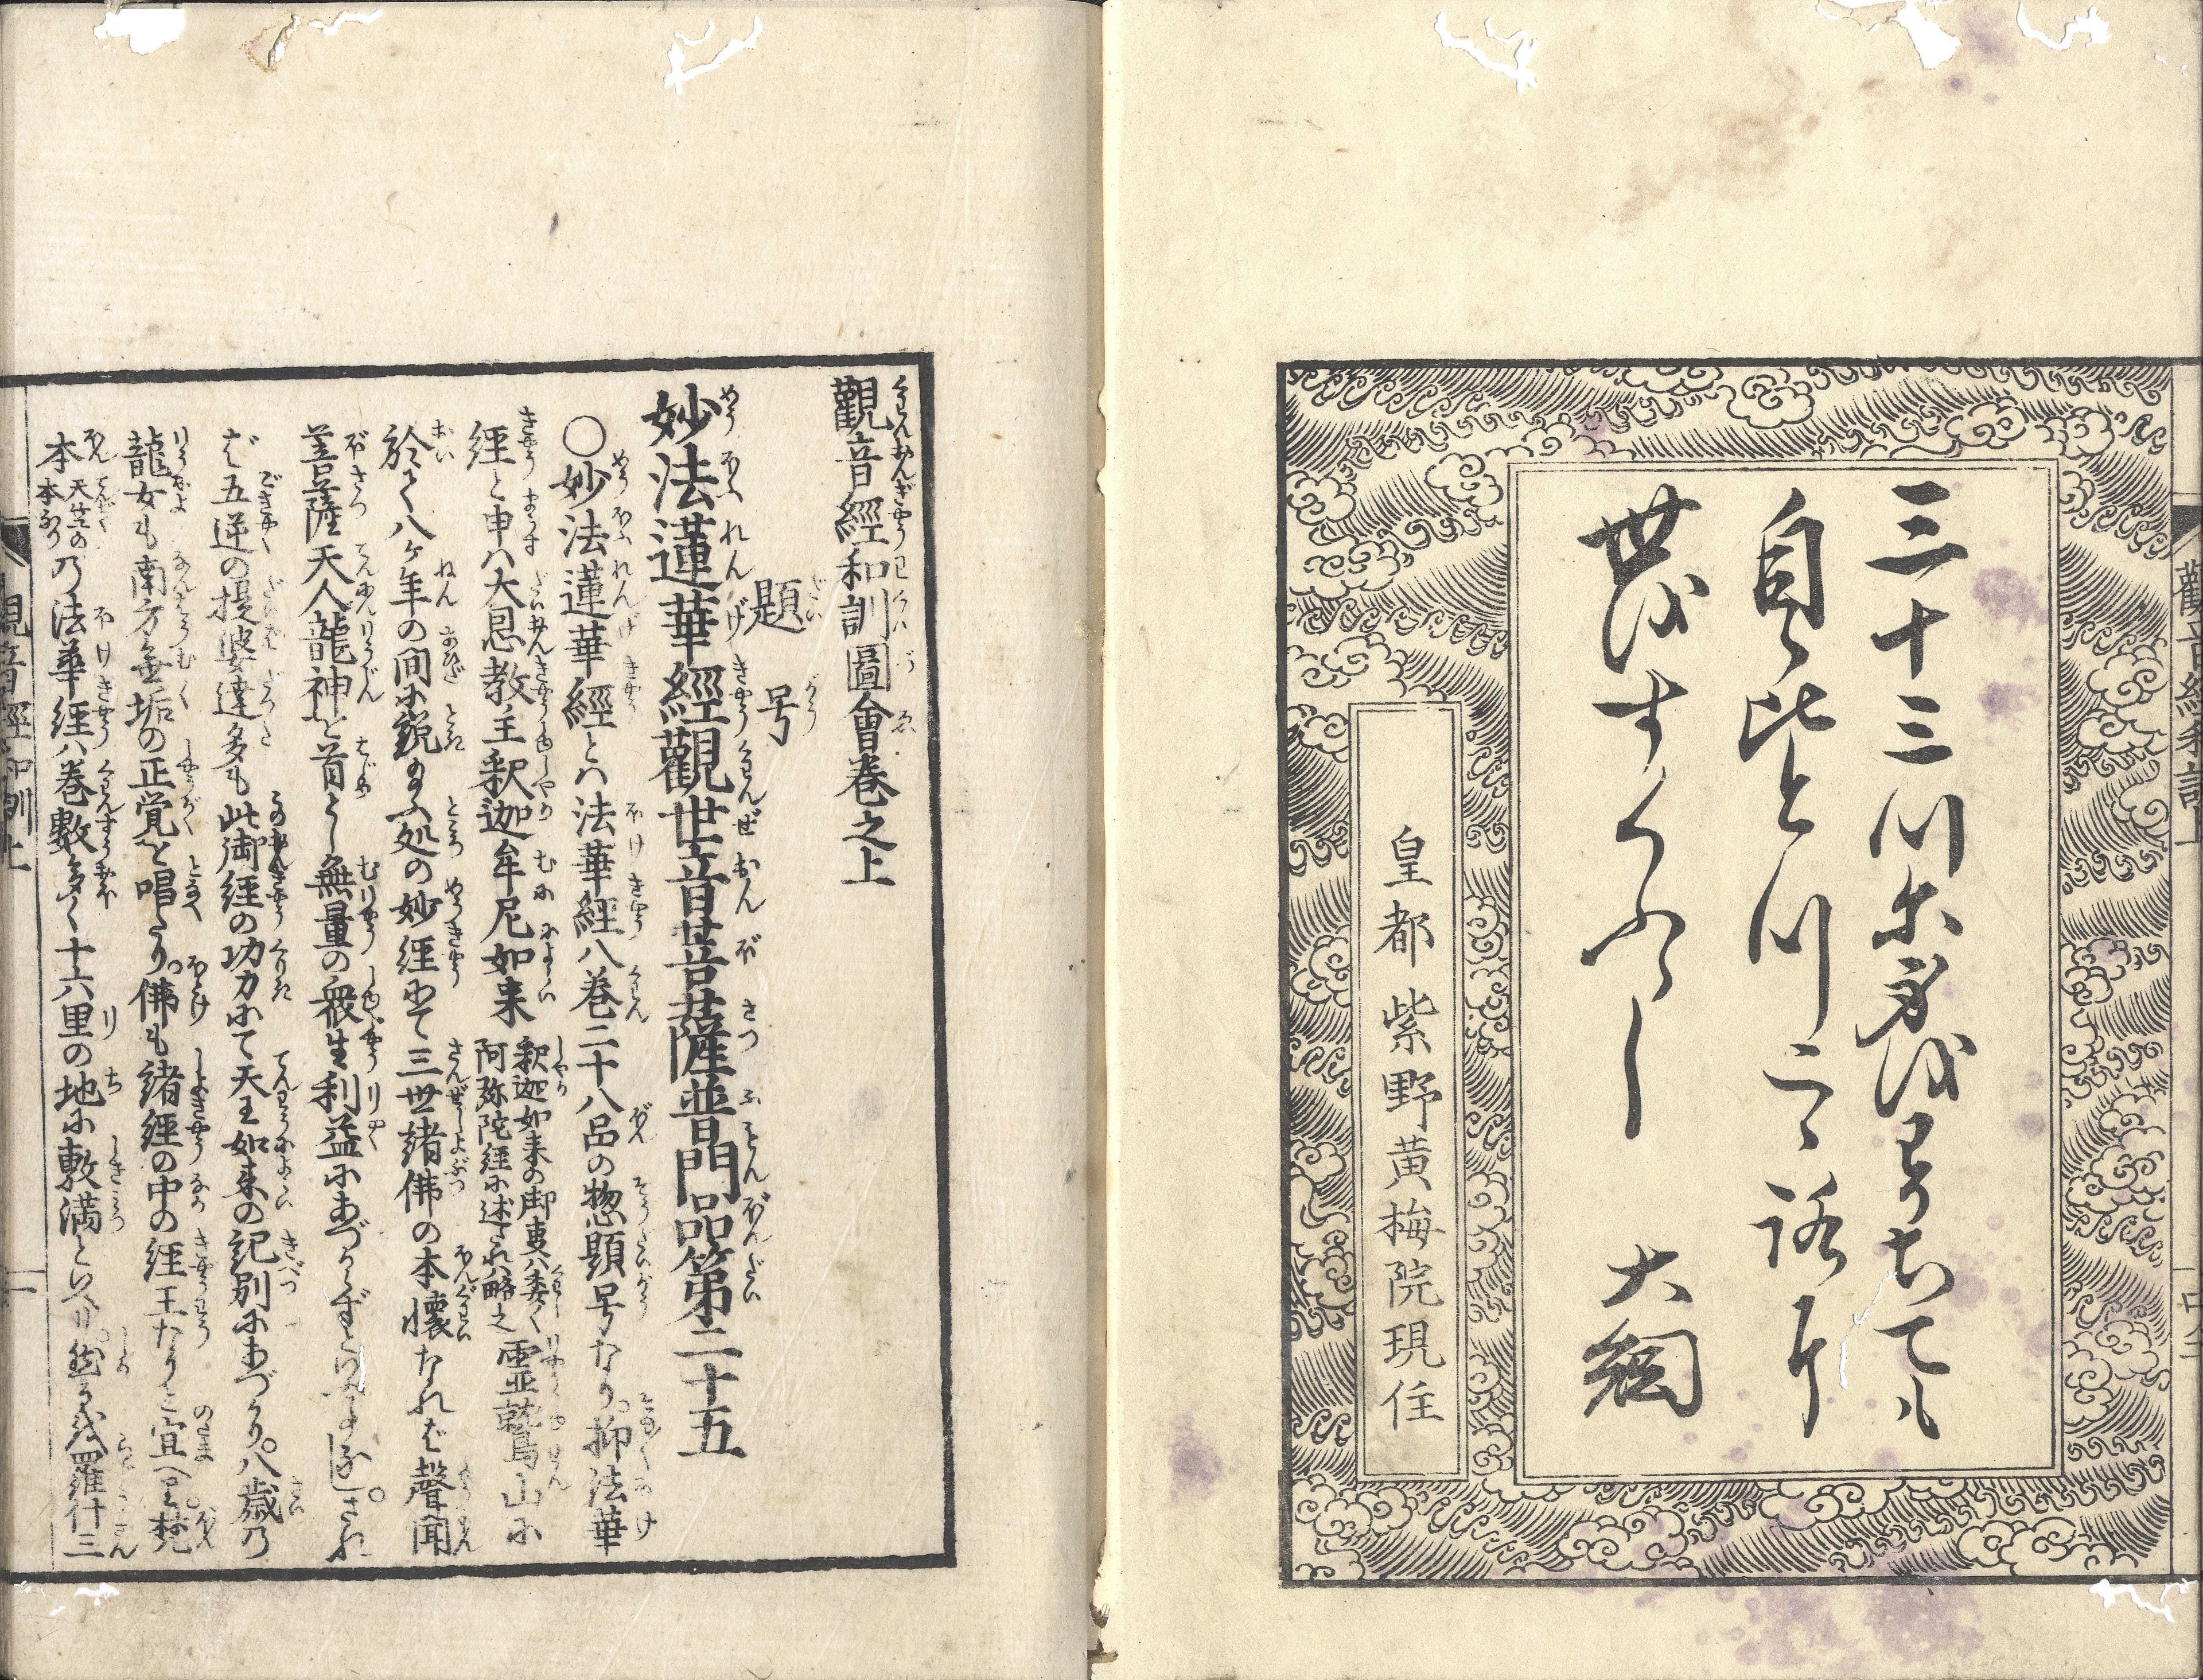 三十三川尓身越王可ちても
自ら比と川二
世越すくふらし
大綱
皇都紫野黄梅院現住
觀音經和訓圖會卷之上
題号
妙法蓮華經觀世音菩薩普門品第二十五
○妙法蓮華經とハ法華經八巻二十八品の惣題号なり。抑法華
経と申ハ大恩教主釈迦牟尼如来
釈迦如来の御事ハ委く
阿弥陀経に述されハ略之
霊鷲山に
於て八ケ年の間に説給ふ処の妙経にて三世諸佛の本懐なれバ聲聞
菩薩天人龍神を首とし無量の衆生利益にあづからずといふ事なし。され
ば五逆の提婆達多も此御経の功力にて天王如来の記別にあづかり。八歳乃
龍女も南方無垢の正覚を唱たり。佛も諸経の中の経王なりと宣へり。梵
本
天竺の
本なり
乃法華経ハ巻數多く十六里の地に敷満といへり。然るを羅什三